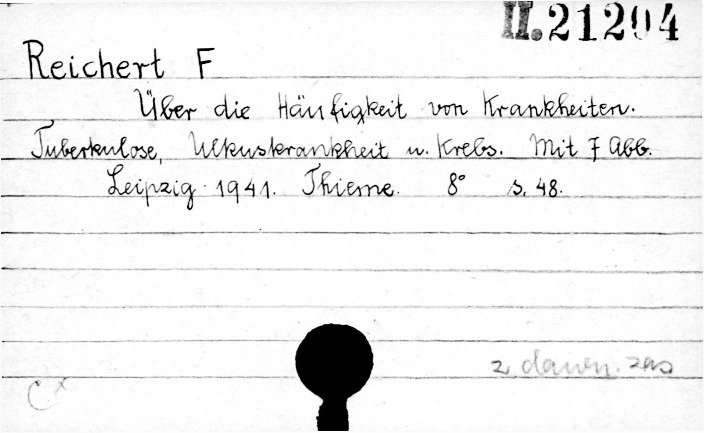 II.21204
Reichert F
Über die Häufigkeit von Krankheiten.
Tuberkulose, Ulkuskrankheit u. Krebs. Mit 7 Abb.
Leipzig 1941. Thieme. 8° s. 48.
z dawn. zas